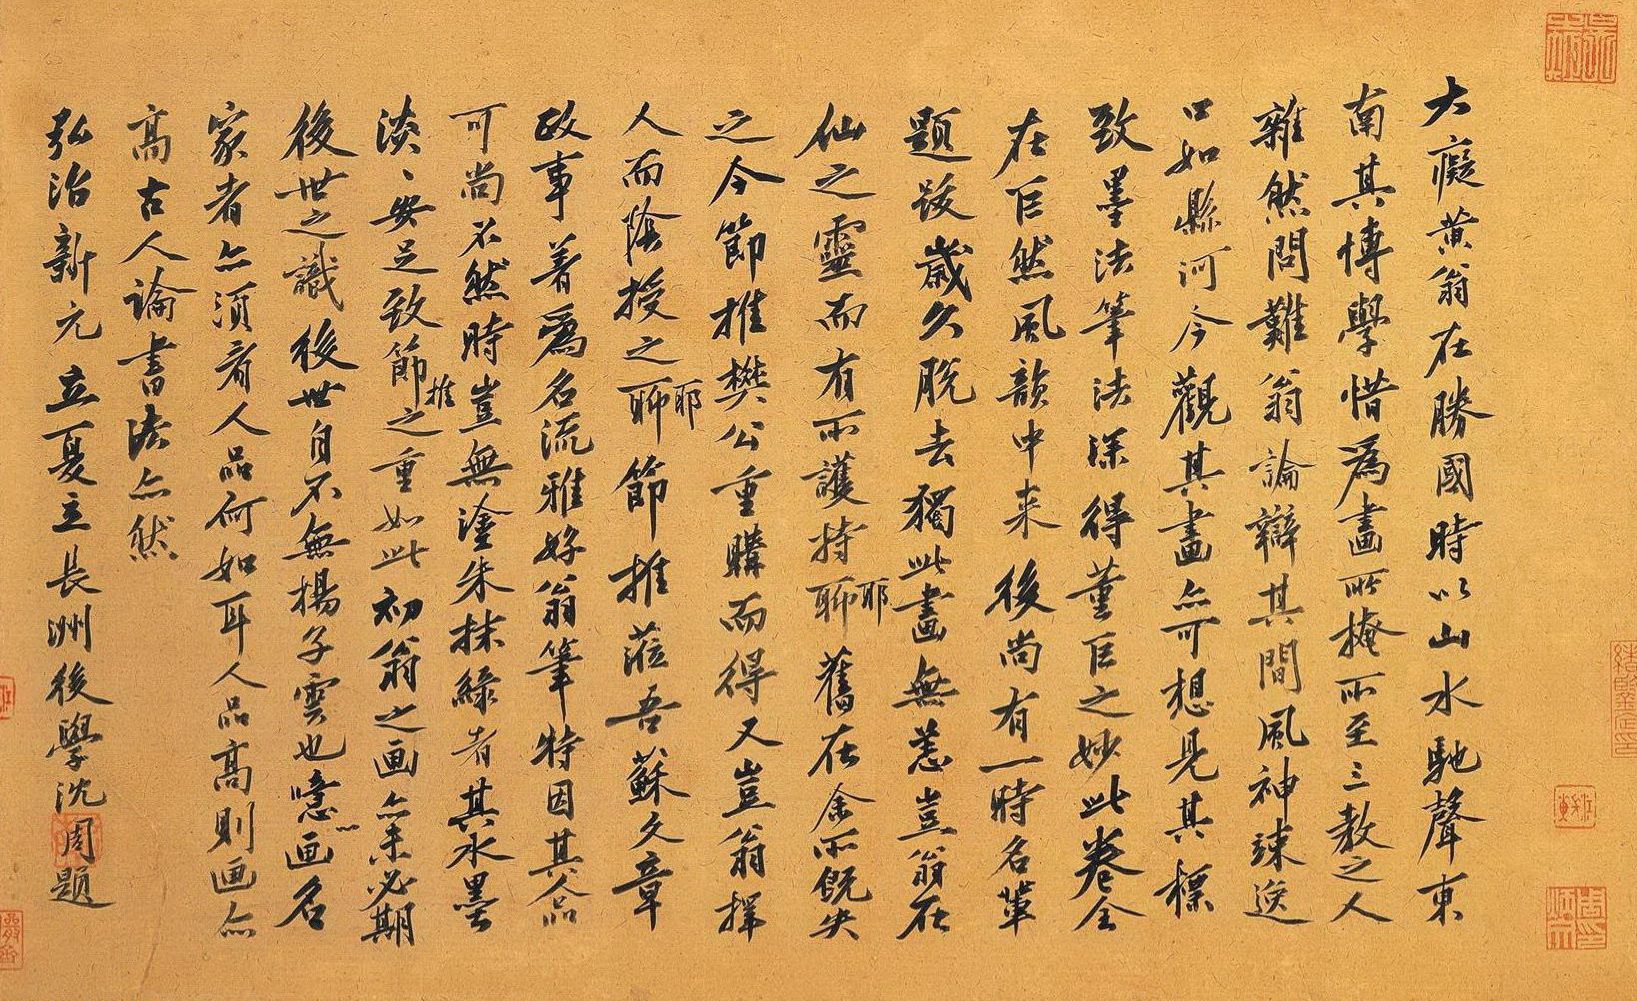 大癡黃翁在勝國時以山水馳聲東
南其博學惜為畫所掩所至三教之人
雜然問難翁論辯其間風神竦逸
口如縣河今觀其畫亦可想見其標
致墨法筆法深得董巨之妙此卷全
在巨然風韻中来後尚有一時名輩
題跋歲久脫去獨此畫無恙豈翁在
仙之靈而有所護持聊耶舊在余所既失
之今節推樊公重購而得又豈翁擇
人而陰授之聊耶節推蒞吾蘇文章
政事著為名流雅好翁筆特因其人品
可尚不然時豈無塗朱抹綠者其水墨
淡〻安足致節推之重如此初翁之画亦未必期
後世之識後世自不無揚子雲也噫画名
家者亦須看人品何如耳人品高則画亦
高古人論書法亦然
弘治新元立夏立長洲後學沈周題